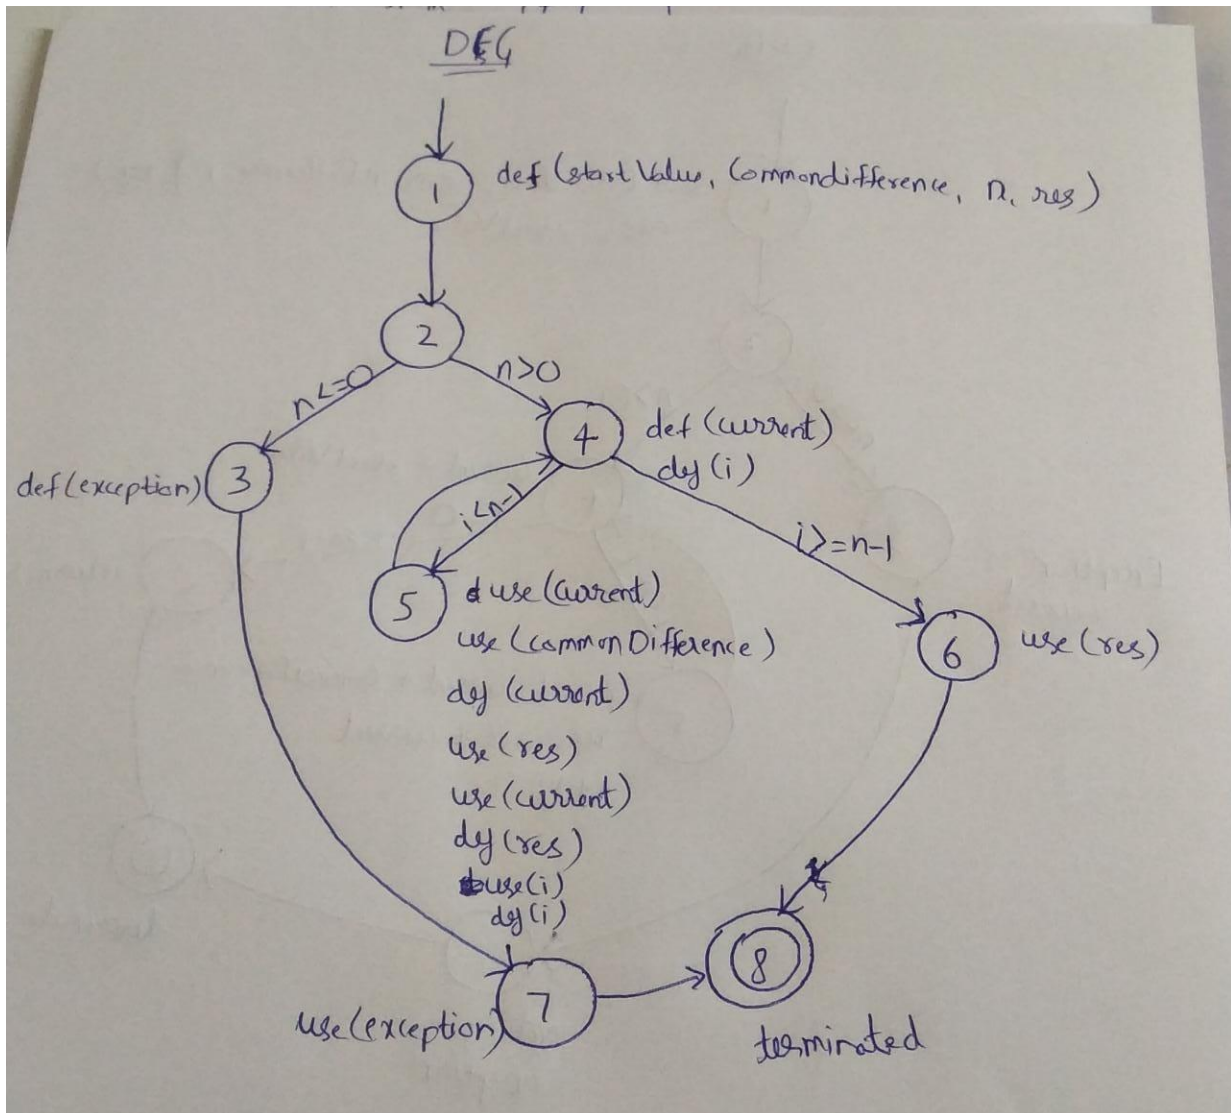 DFG
1 def (startValue, Commondifference, n, res)
2
n<=0
n>0
4 def (current)
def (i)
def (exception) 3
i<n-1
i>=n-1
5 use (current)
use (commonDifference)
def (current)
use (res)
use (current)
def (res)
use (i)
def (i)
6 use (res)
7
use (exception)
8
terminated